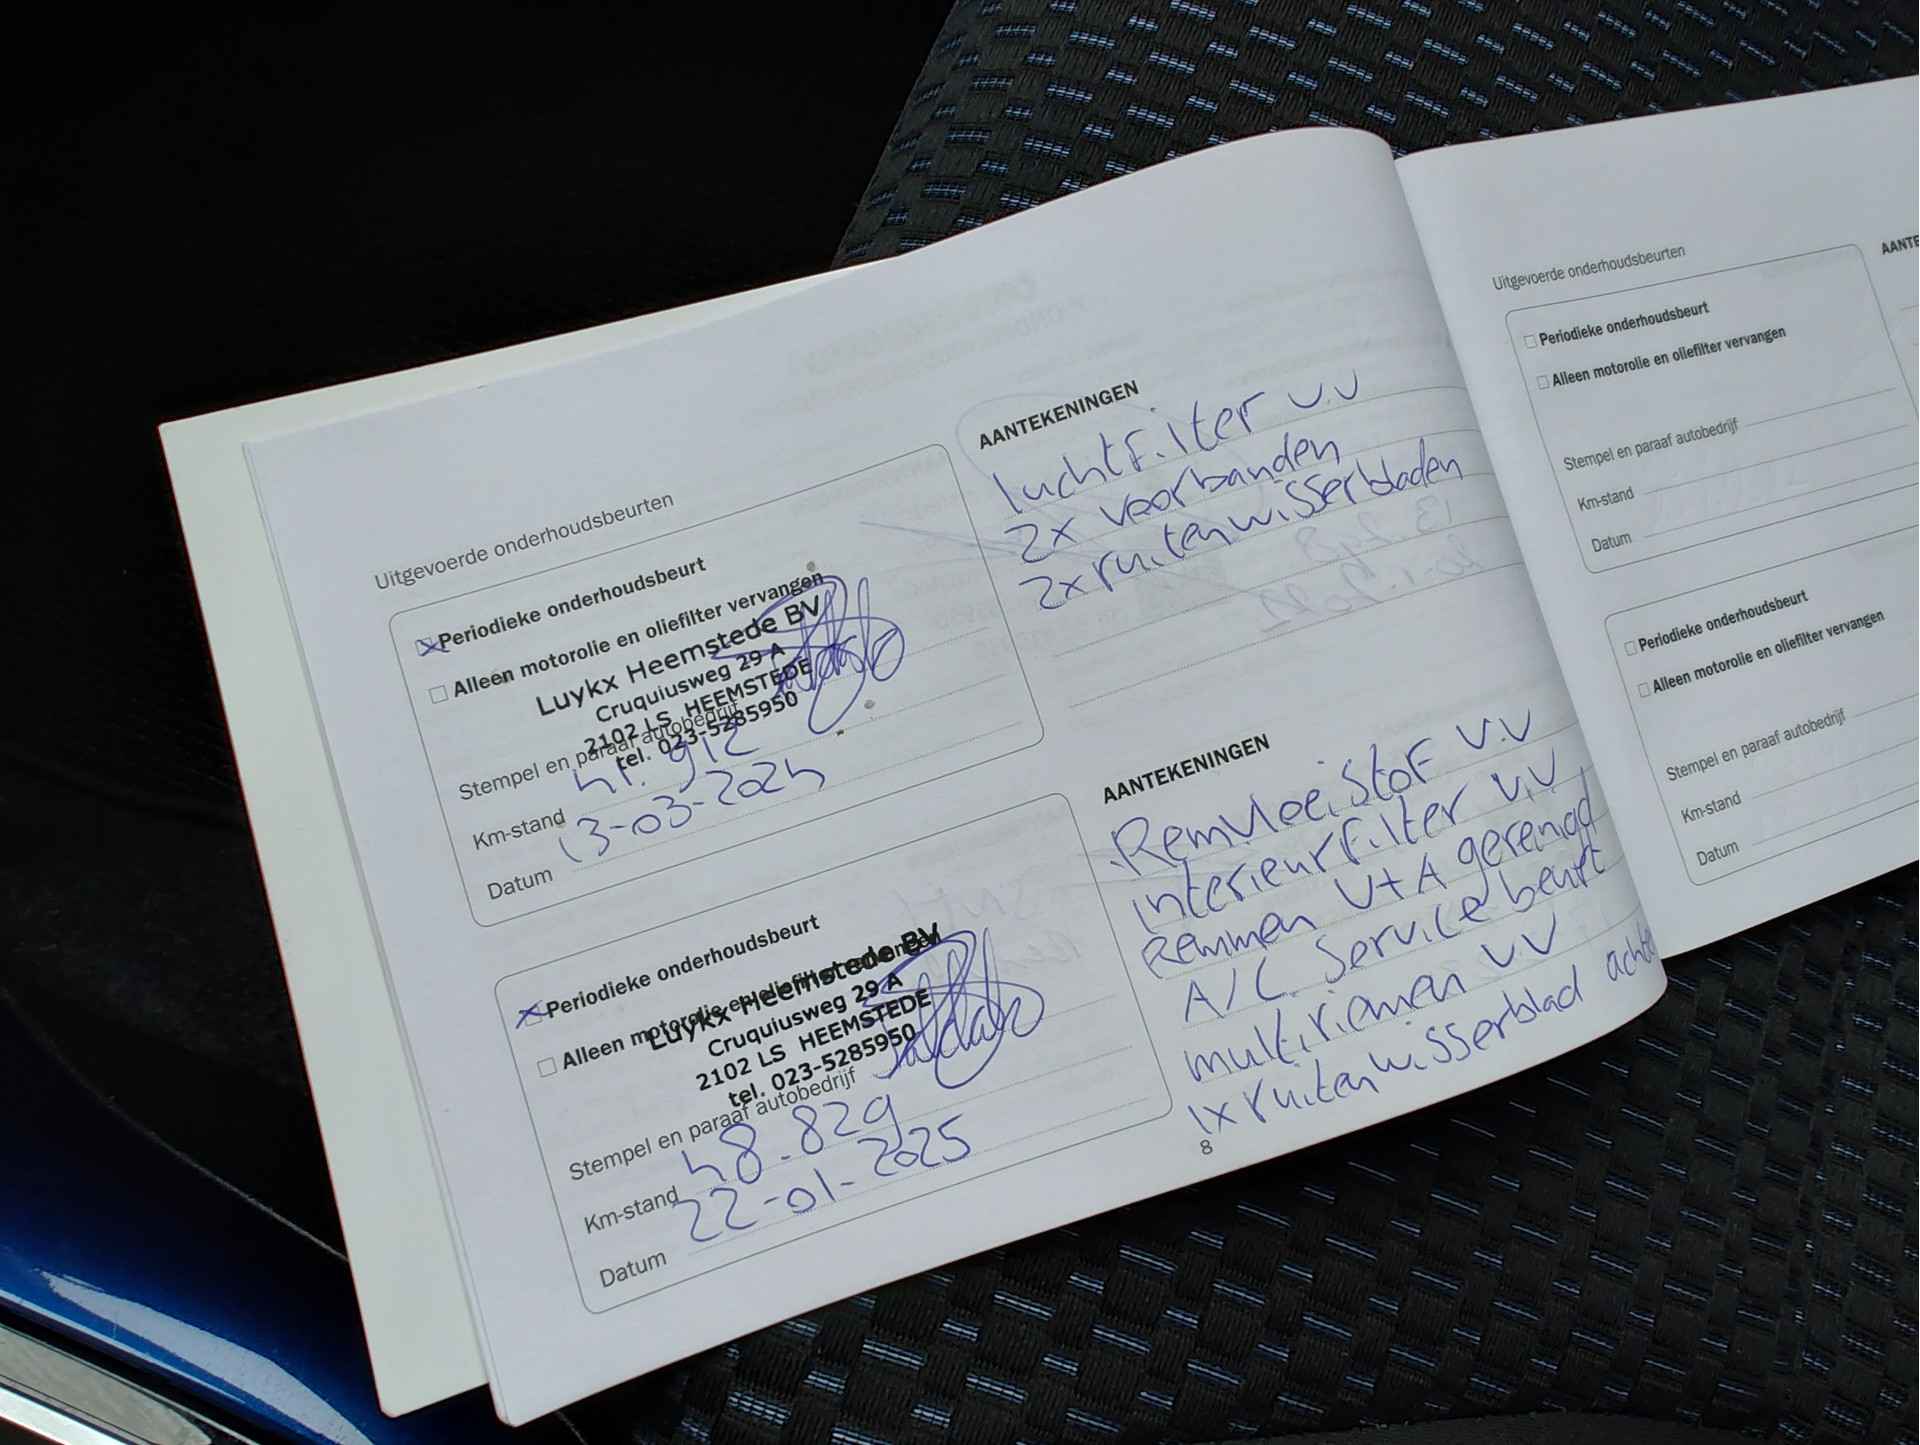 Uitgevoerde onderhoudsbeurten
Periodieke onderhoudsbeurt
Alleen motorolie en oliefilter vervangen
Luykx Heemstede BV
Cruquiusweg 29 A
2102 LS HEEMSTEDE
tel. 023-5285950
Stempel en paraaf autobedrijf
Km-stand 41.912
Datum 13-03-2024
AANTEKENINGEN
luchtfilter v.v
2x voorbanden
2x ruitenwisserbladen
Periodieke onderhoudsbeurt
Alleen motorolie en oliefilter vervangen
Luykx Heemstede BV
Cruquiusweg 29 A
2102 LS HEEMSTEDE
tel. 023-5285950
Stempel en paraaf autobedrijf
Km-stand 48.829
Datum 22-01-2025
AANTEKENINGEN
Remvloeistof v.v
interieurfilter v.v
Remmen V+A gereinigd
A/C. Service beurt
multiriemen v.v
1x ruitenwisserblad
8
Uitgevoerde onderhoudsbeurten
Periodieke onderhoudsbeurt
Alleen motorolie en oliefilter vervangen
Stempel en paraaf autobedrijf
Km-stand
Datum
AANTE
Periodieke onderhoudsbeurt
Alleen motorolie en oliefilter vervangen
Stempel en paraaf autobedrijf
Km-stand
Datum